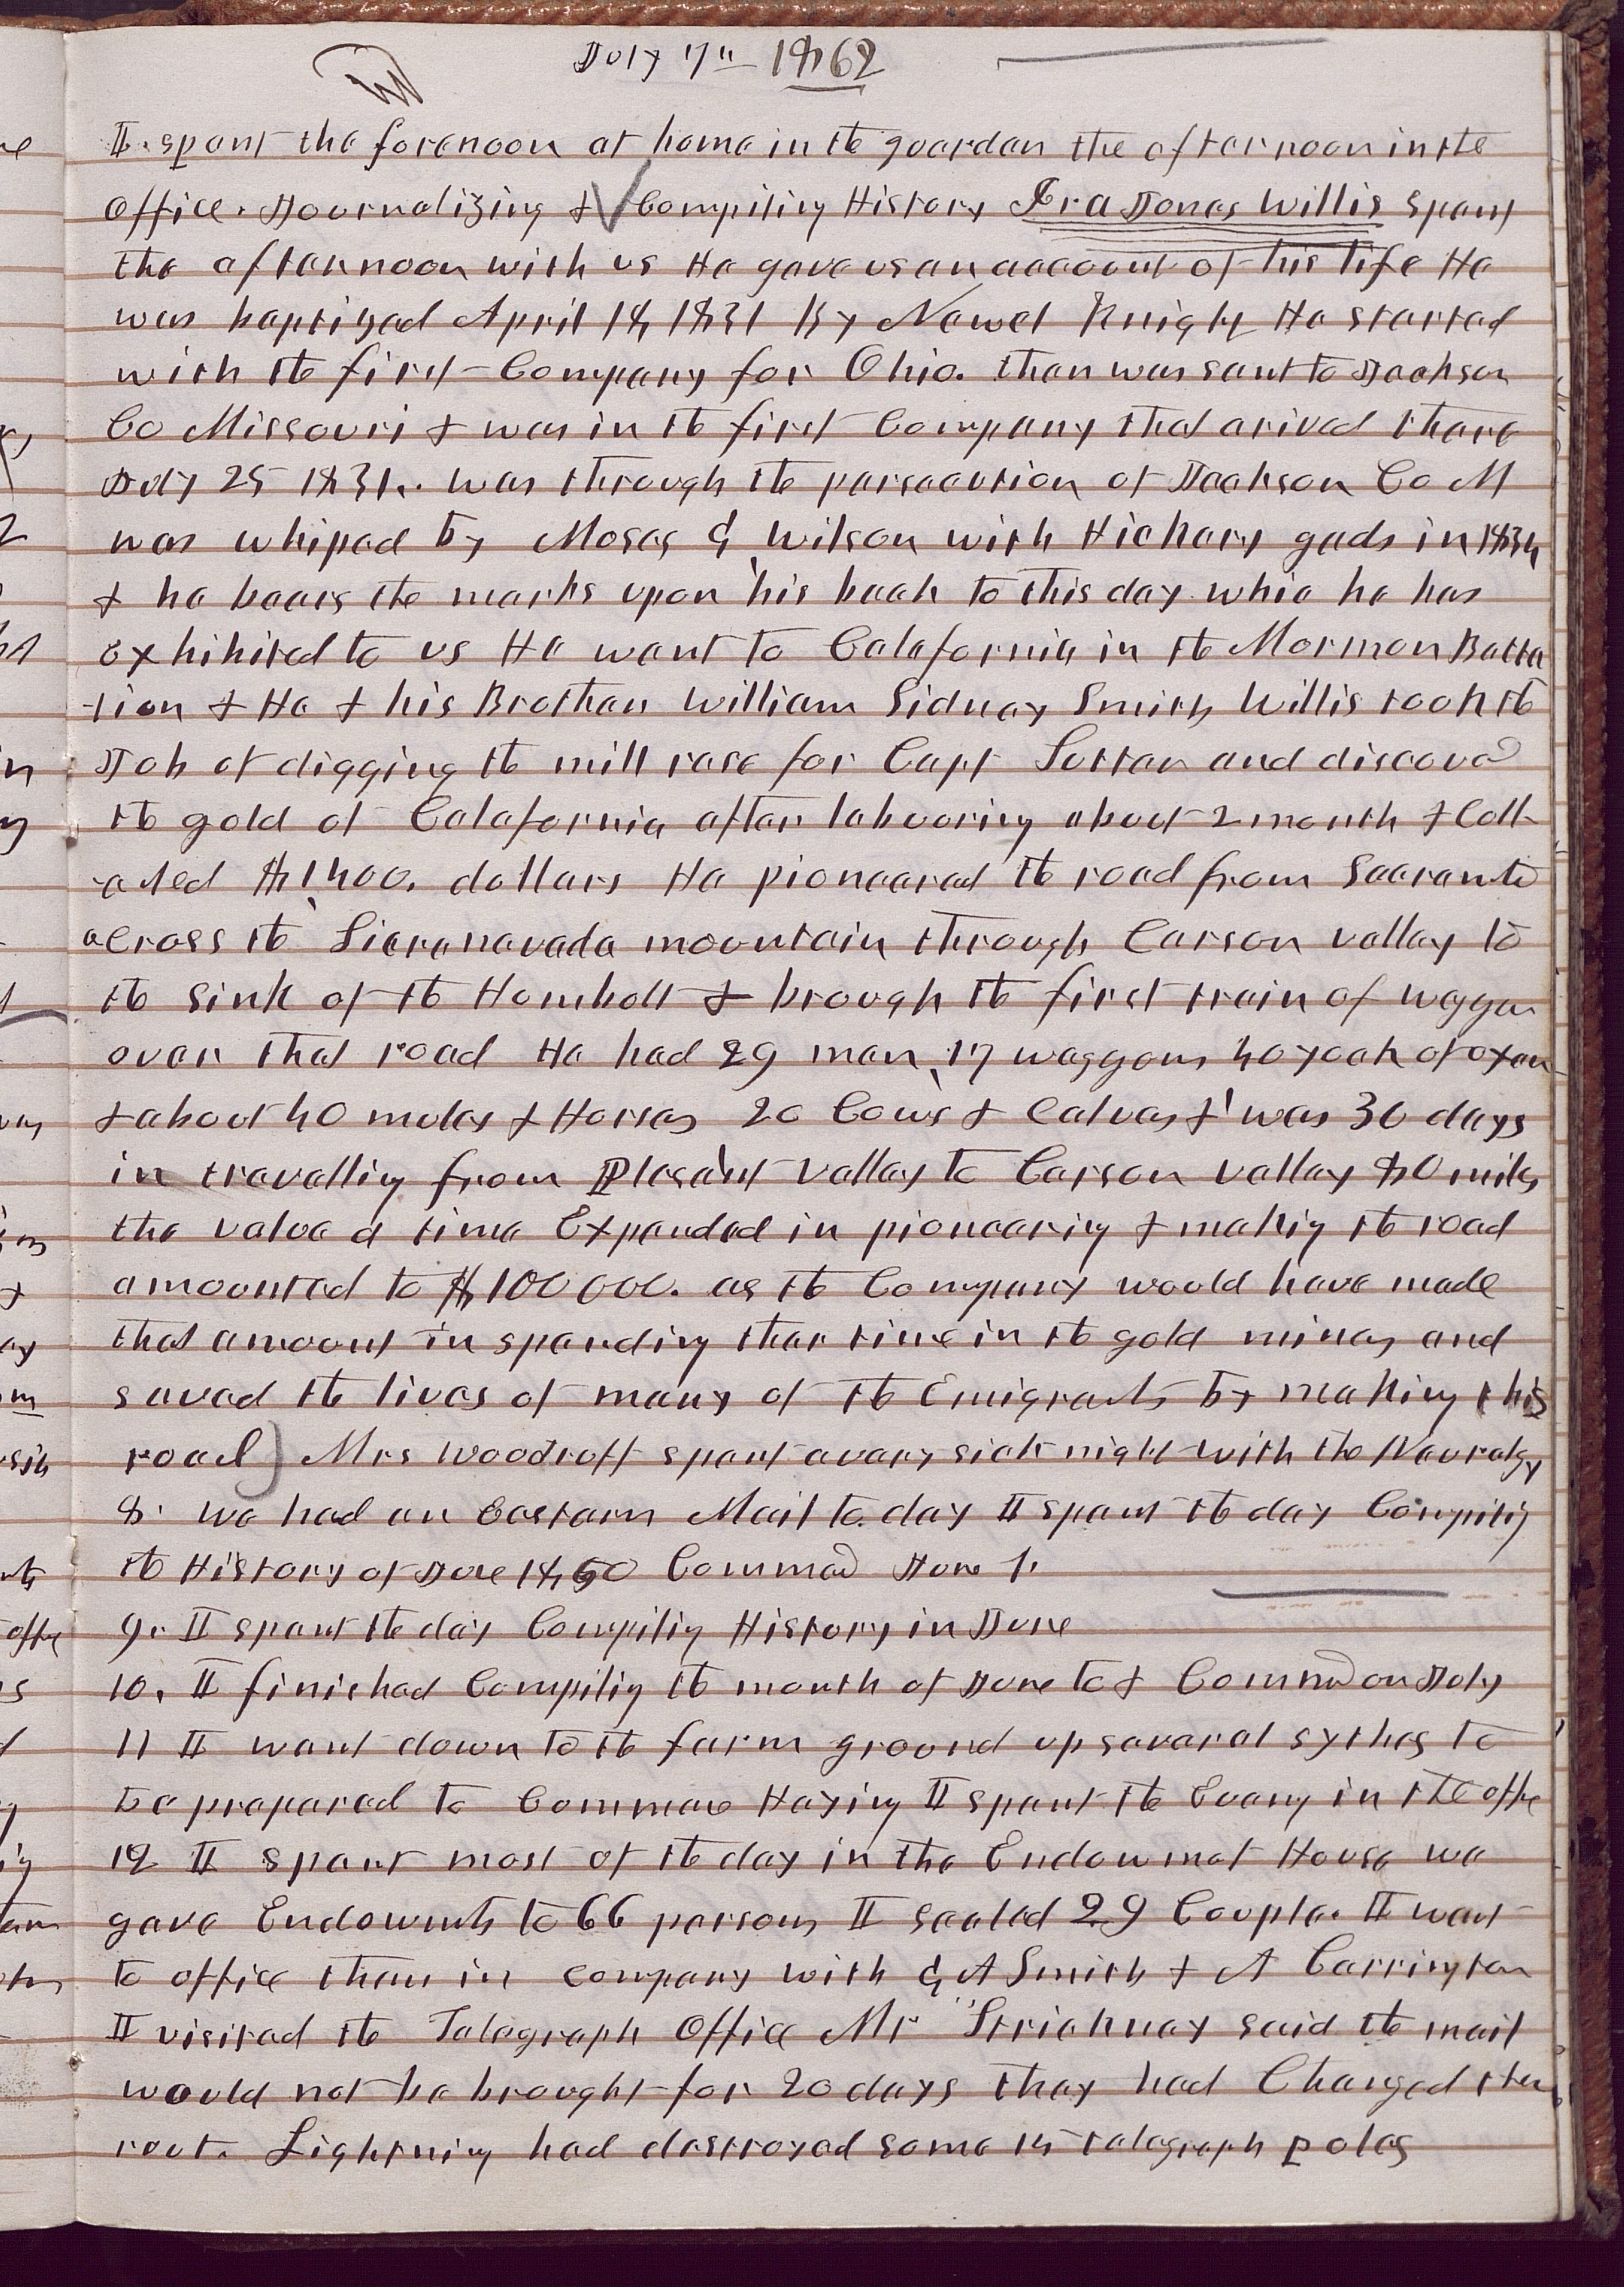 July 7th 1862
I spent the forenoon at home in the guarden the afternoon in the
office. Journalizing & Compiling History Ira Jones Willis spent
the afternoon with us He gave us an account of his life He
was baptized April 18, 1831 By Newel Knight He started
with the first Company for Ohio. then was sent to Jackson
Co Missouri & was in the first Company that arived there
July 25 1831. was through the persecution of Jackson Co M
was whiped by Moses G Wilson with Hickory gads in 1834
& he bears the marks upon his back to this day whic he has
exhibited to us He went to Calafornia in the Mormon Batta
-lion & He & his Brother William Sidney Smith Willis took the
Job of digging the mill race for Capt Sutter and discovd
the gold of Calafornia after labouring about 2 month & Coll-
-ected $1400. dollars He pioneered the road from Sacramto
across the Sieranavada mountain through Carson valley to
the sink of the Humbolt & brough the first train of waggon
over that road He had 29 men, 17 waggons 40 yoak of oxen
& about 40 mules & Horses 20 Cows & Calves & was 30 days
in travelling from Plesant valley to Carson valley 80 miles
the value of time Expended in pioneering & making the road
amounted to $100000. as the Company would have made
that amount in spending that time in the gold mines and
saved the lives of many of the Emigrants by making this
road) Mrs Woodruff spent a very sick night with the Neuralgy
8. We had an Eastern Mail to day I spent the day Compiling
the History of June 1860 Commed June 1.
9. I spent the day Compiling History in June
10. I finished Compiling the month of June to & Commd on July
11 I went down to the farm ground up several sythes to
be prepared to Commence Haying I spent the Eveng in the offce
12 I spent most of the day in the Endowmet House we
gave Endowmts to 66 persons I sealed 29 Couple. I went
to office then in company with G A Smith & A Carrington
I visited the Telegraph Office Mr Strickney said the mail
would not be brought for 20 days they had Changed the
rout. Lightning had destroyed some 15 telegraph poles